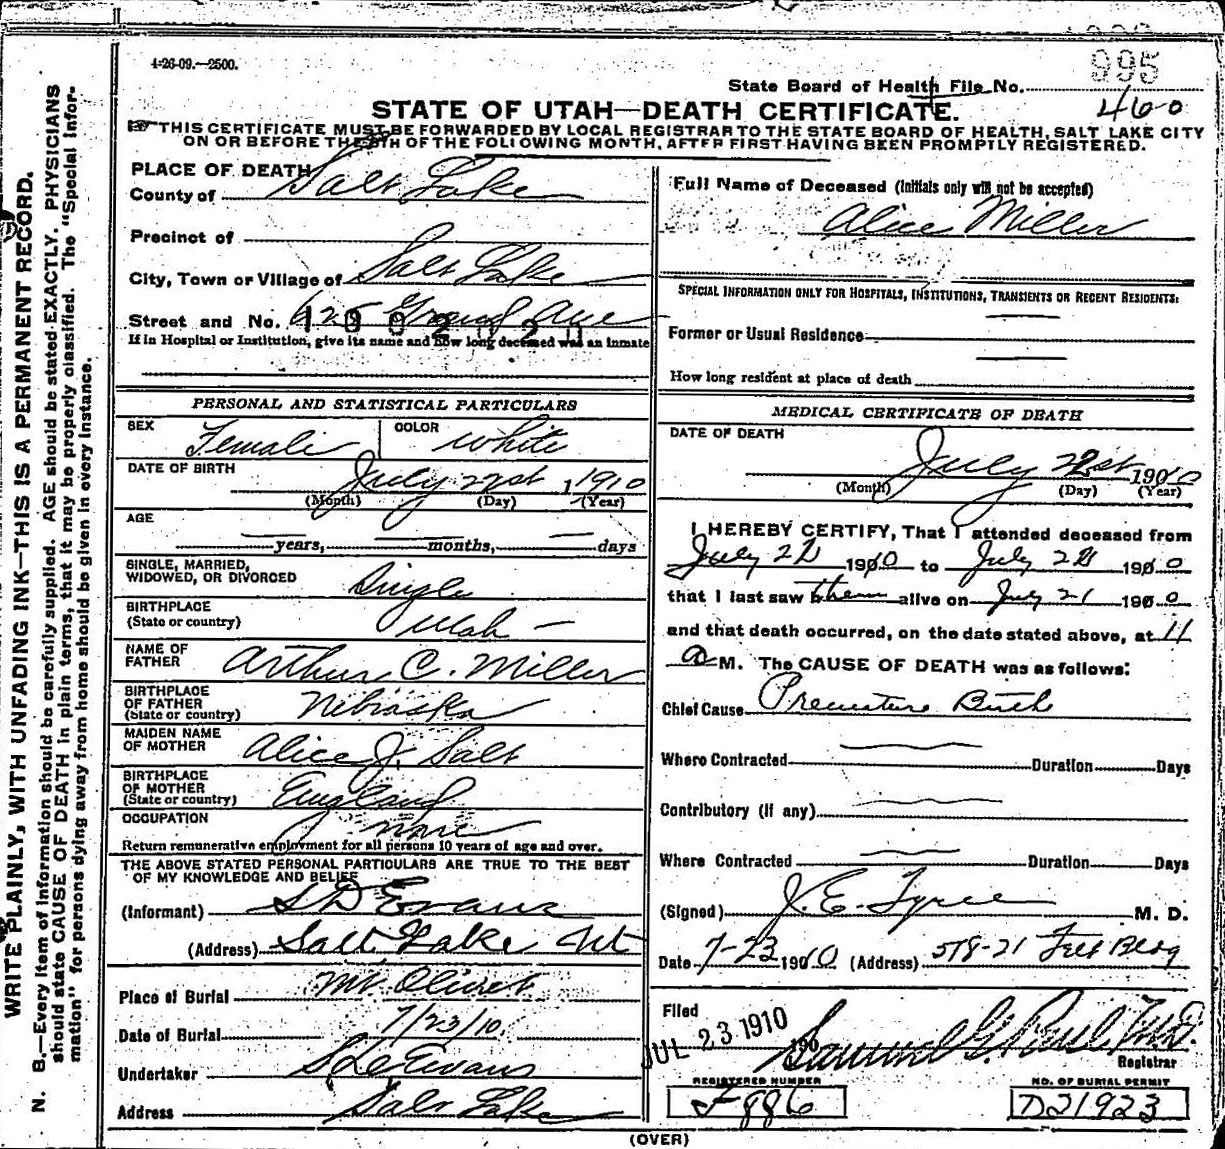 4-26-09.—2500.
995
State Board of Health File No.
460
STATE OF UTAH—DEATH CERTIFICATE.
☞ THIS CERTIFICATE MUST BE FORWARDED BY LOCAL REGISTRAR TO THE STATE BOARD OF HEALTH, SALT LAKE CITY
ON OR BEFORE THE 5TH OF THE FOLLOWING MONTH, AFTER FIRST HAVING BEEN PROMPTLY REGISTERED.
PLACE OF DEATH
County of Salt Lake
Precinct of
City, Town or Village of Salt Lake
Street and No. 625 Grand Ave
1002020
If in Hospital or Institution, give its name and how long deceased was an inmate
PERSONAL AND STATISTICAL PARTICULARS
SEX Female COLOR White
DATE OF BIRTH July 21st, 1910
(Month) (Day) (Year)
AGE
— years, — months, — days
SINGLE, MARRIED,
WIDOWED, OR DIVORCED Single
BIRTHPLACE
(State or country) Utah —
NAME OF
FATHER Arthur C. Miller
BIRTHPLACE
OF FATHER
(State or country) Nebraska
MAIDEN NAME
OF MOTHER Alice J. Salt
BIRTHPLACE
OF MOTHER
(State or country) England
OCCUPATION none
Return remunerative employment for all persons 10 years of age and over.
THE ABOVE STATED PERSONAL PARTICULARS ARE TRUE TO THE BEST
OF MY KNOWLEDGE AND BELIEF
(Informant) S D Evans
(Address) Salt Lake Ut
Place of Burial Mt. Olivet
Date of Burial 7/23/10.
Undertaker S D Evans
Address Salt Lake
Full Name of Deceased (Initials only will not be accepted)
Alice Miller
SPECIAL INFORMATION ONLY FOR HOSPITALS, INSTITUTIONS, TRANSIENTS OR RECENT RESIDENTS:
Former or Usual Residence
How long resident at place of death
MEDICAL CERTIFICATE OF DEATH
DATE OF DEATH
July 21st 1910
(Month) (Day) (Year)
I HEREBY CERTIFY, That I attended deceased from
July 21 1910 to July 21 1910
that I last saw them alive on July 21 1910
and that death occurred, on the date stated above, at 11
a M. The CAUSE OF DEATH was as follows:
Chief Cause Premature Birth
Where Contracted Duration Days
Contributory (if any)
Where Contracted Duration Days
(Signed) J. E. Tyree M. D.
Date 7-23 1910 (Address) 518-21 Felt Bldg
Filed JUL 23 1910 190 Samuel G. Paul M.D.
Registrar
REGISTERED NUMBER
F886
NO. OF BURIAL PERMIT
D21923
(OVER)
WRITE PLAINLY, WITH UNFADING INK—THIS IS A PERMANENT RECORD.
N. B.—Every item of information should be carefully supplied. AGE should be stated EXACTLY. PHYSICIANS
should state CAUSE OF DEATH in plain terms, that it may be properly classified. The "Special Infor-
mation" for persons dying away from home should be given in every instance.